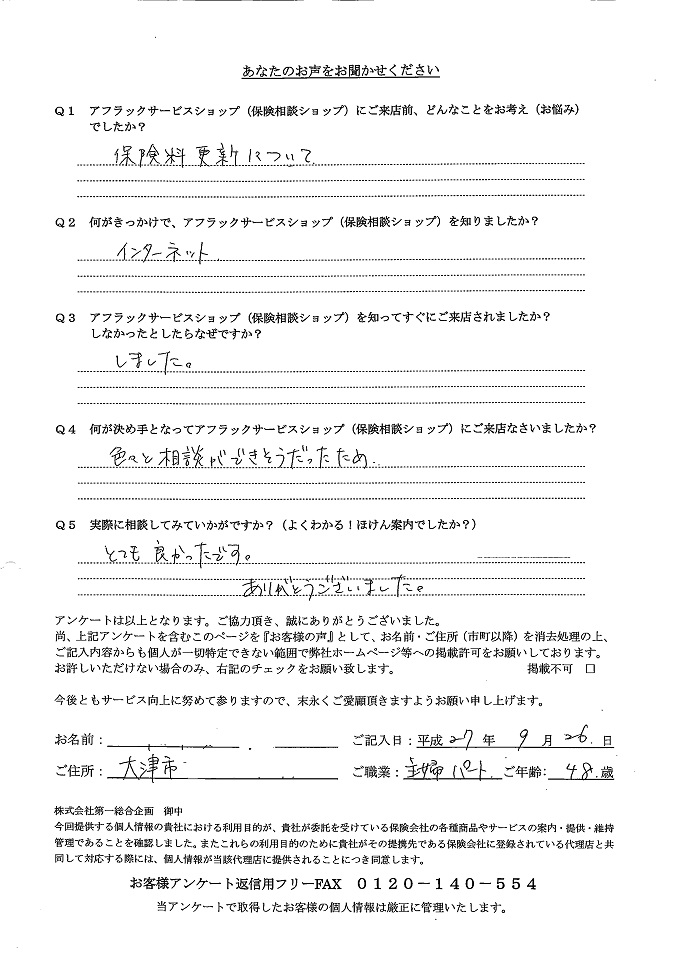 あなたのお声をお聞かせください
Q1 アフラックサービスショップ（保険相談ショップ）にご来店前、どんなことをお考え（お悩み）
でしたか？
保険料更新について
Q2 何がきっかけで、アフラックサービスショップ（保険相談ショップ）を知りましたか？
インターネット
Q3 アフラックサービスショップ（保険相談ショップ）を知ってすぐにご来店されましたか？
しなかったとしたらなぜですか？
しました。
Q4 何が決め手となってアフラックサービスショップ（保険相談ショップ）にご来店なさいましたか？
色々と相談ができそうだったため
Q5 実際に相談してみていかがですか？（よくわかる！ほけん案内でしたか？）
とても良かったです。
ありがとうございました。
アンケートは以上となります。ご協力頂き、誠にありがとうございました。
尚、上記アンケートを含むこのページを『お客様の声』として、お名前・ご住所（市町以降）を消去処理の上、
ご記入内容からも個人が一切特定できない範囲で弊社ホームページ等への掲載許可をお願いしております。
お許しいただけない場合のみ、右記のチェックをお願い致します。 掲載不可 □
今後ともサービス向上に努めて参りますので、末永くご愛顧頂きますようお願い申し上げます。
お名前： ご記入日：平成 27 年 9 月 26 日
ご住所： 大津市 ご職業：主婦 パート ご年齢： 48 歳
株式会社第一総合企画 御中
今回提供する個人情報の貴社における利用目的が、貴社が委託を受けている保険会社の各種商品やサービスの案内・提供・維持
管理であることを確認しました。またこれらの利用目的のために貴社がその提携先である保険会社に登録されている代理店と共
同して対応する際には、個人情報が当該代理店に提供されることにつき同意します。
お客様アンケート返信用フリーFAX 0120－140－554
当アンケートで取得したお客様の個人情報は厳正に管理いたします。